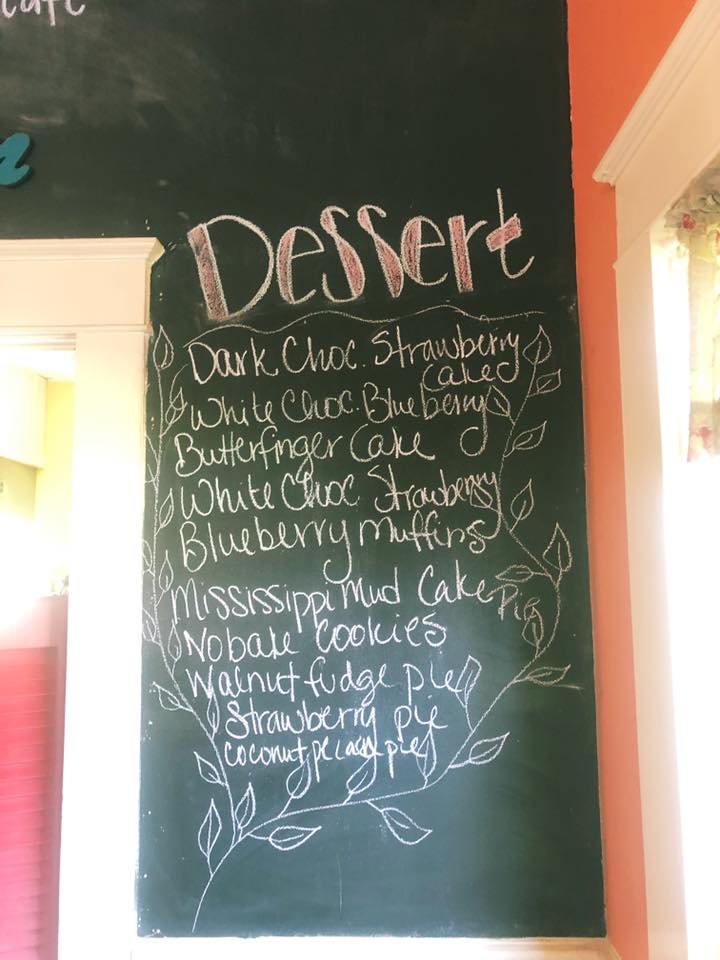 cafe
Dessert
Dark Choc. Strawberry
Cake
White Choc. Blueberry
Butterfinger Cake
White Choc Strawberry
Blueberry Muffins
Mississippi Mud Cake Pie
No bake Cookies
Walnut fudge pie
Strawberry pie
coconut pecan pie